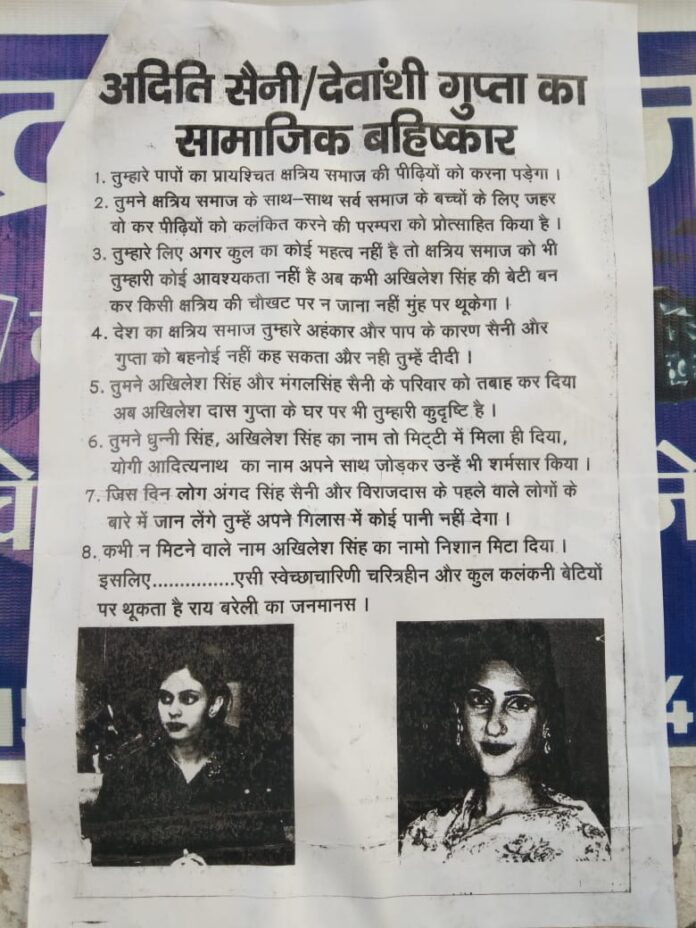 अदिति सैनी/देवांशी गुप्ता का
सामाजिक बहिष्कार
1. तुम्हारे पापों का प्रायश्चित क्षत्रिय समाज की पीढ़ियों को करना पड़ेगा ।
2. तुमने क्षत्रिय समाज के साथ–साथ सर्व समाज के बच्चों के लिए जहर
वो कर पीढ़ियों को कलंकित करने की परम्परा को प्रोत्साहित किया है ।
3. तुम्हारे लिए अगर कुल का कोई महत्व नहीं है तो क्षत्रिय समाज को भी
तुम्हारी कोई आवश्यकता नहीं है अब कभी अखिलेश सिंह की बेटी बन
कर किसी क्षत्रिय की चौखट पर न जाना नहीं मुंह पर थूकेगा ।
4. देश का क्षत्रिय समाज तुम्हारे अहंकार और पाप के कारण सैनी और
गुप्ता को बहनोई नहीं कह सकता और नही तुम्हें दीदी ।
5. तुमने अखिलेश सिंह और मंगलसिंह सैनी के परिवार को तबाह कर दिया
अब अखिलेश दास गुप्ता के घर पर भी तुम्हारी कुदृष्टि है ।
6. तुमने धुन्नी सिंह, अखिलेश सिंह का नाम तो मिट्टी में मिला ही दिया,
योगी आदित्यनाथ का नाम अपने साथ जोड़कर उन्हें भी शर्मसार किया ।
7. जिस दिन लोग अंगद सिंह सैनी और विराजदास के पहले वाले लोगों के
बारे में जान लेंगे तुम्हें अपने गिलास में कोई पानी नहीं देगा ।
8. कभी न मिटने वाले नाम अखिलेश सिंह का नामो निशान मिटा दिया ।
इसलिए...............एसी स्वेच्छाचारिणी चरित्रहीन और कुल कलंकनी बेटियों
पर थूकता है राय बरेली का जनमानस ।